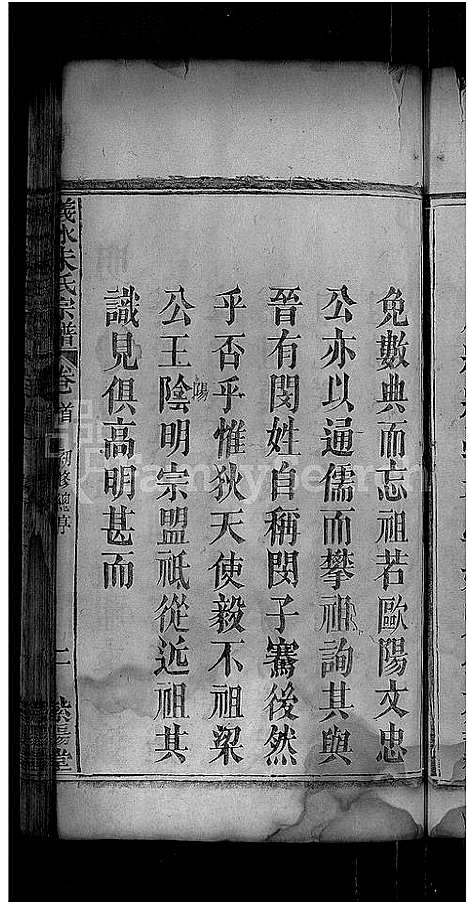 免數典而忘祖若歐陽文忠
公亦以通儒而攀祖詢其與
晉有閔姓自稱閔子騫後然
乎否乎惟狄天使毅不祖梁
公王陰明宗盟祇從近祖其
陽
識見俱高明甚而
義水朱氏宗譜 卷首
二 紫陽堂